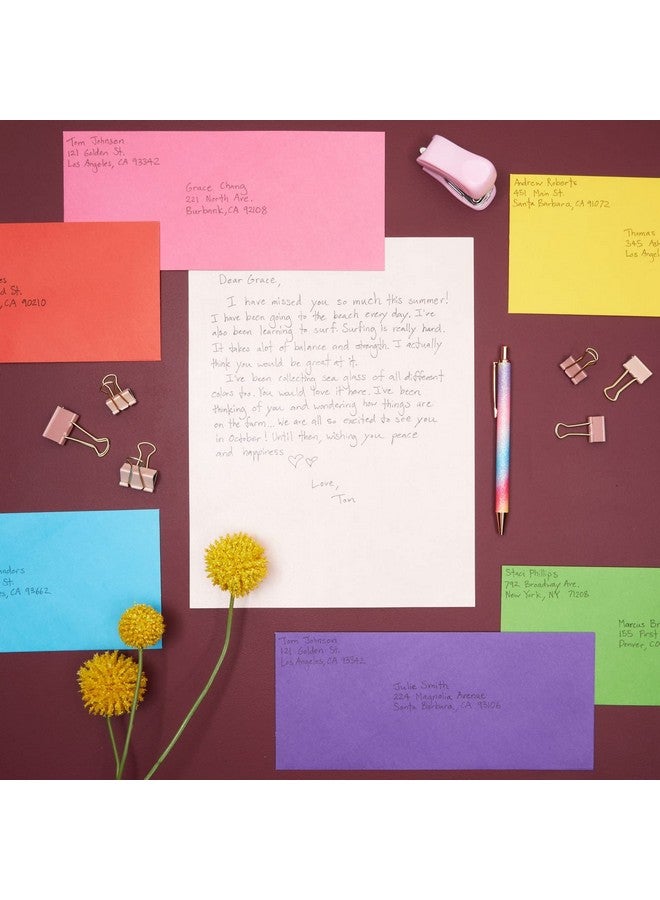 Tom Johnson
121 Golden St.
Los Angeles, CA 93342
Grace Chang
221 North Ave.
Burbank, CA 92108
Andrew Roberts
451 Main St.
Santa Barbara, CA 91072
Thomas
345 Ash
Los Angel
es
d St.
, CA 90210
Dear Grace,
I have missed you so much this summer!
I have been going to the beach every day. I've
also been learning to surf. Surfing is really hard.
It takes alot of balance and strength. I actually
think you would be great at it.
I've been collecting sea glass of all different
colors too. You would love it here. I've been
thinking of you and wondering how things are
on the farm... We are all so excited to see you
in October! Until then, wishing you peace
and happiness
Love,
Tom
nders
St.
s, CA 93662
Staci Phillips
792 Broadway Ave.
New York, NY 71208
Marcus Br
155 First
Denver, CO
Tom Johnson
121 Golden St.
Los Angeles, CA 93342
Julie Smith
224 Magnolia Avenue
Santa Barbara, CA 93106